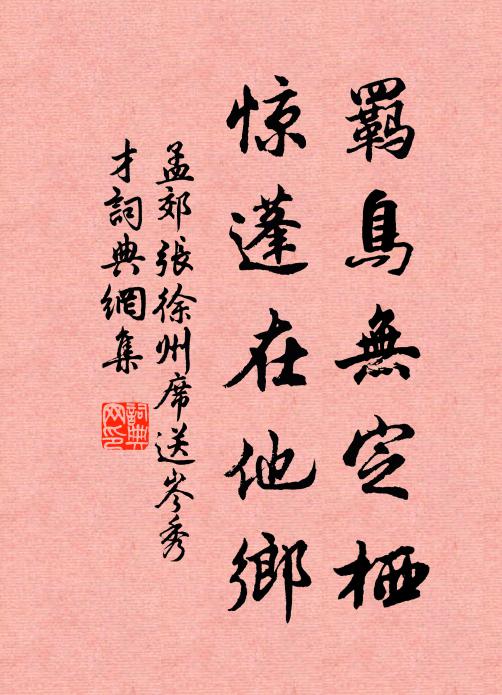 羁鳥無定栖
惊蓬在他鄉
孟郊張徐州席送岑秀
才詞典網集
詞典
网印